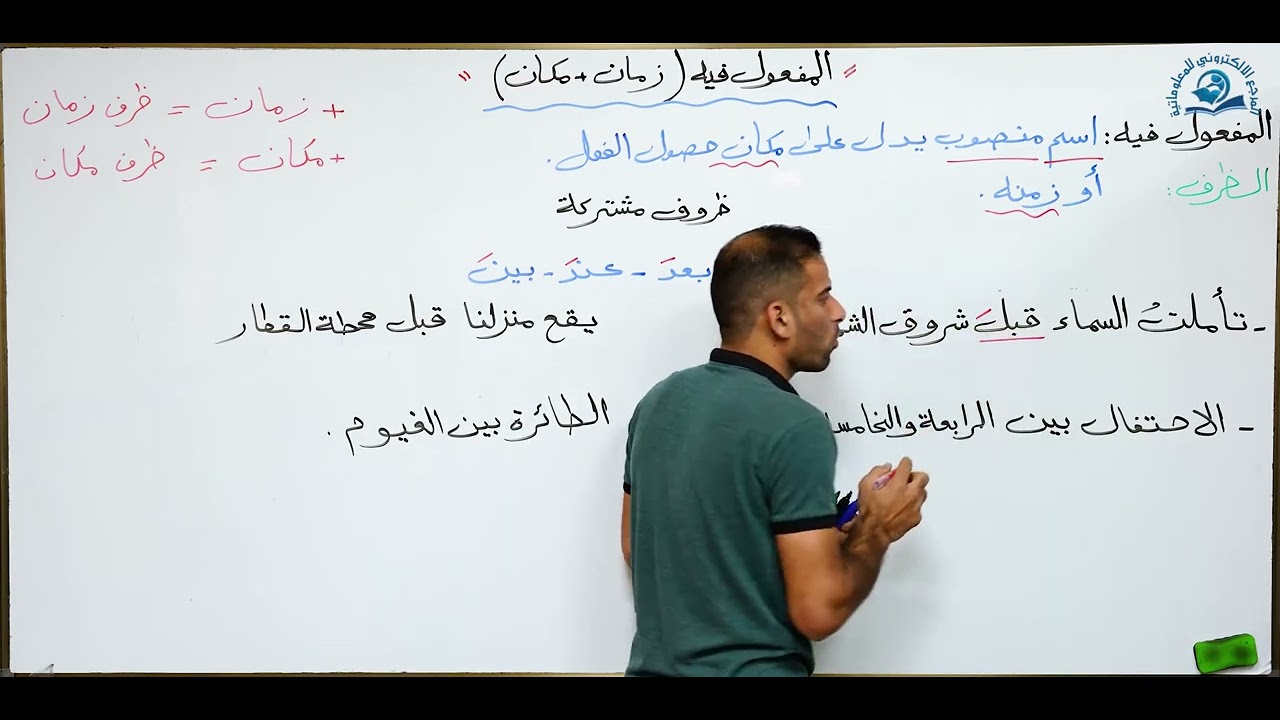 " المفعول فيه (زمان + مكان) "
المفعول فيه: اسم منصوب يدل على مكان حصول الفعل.
الظرف: أو زمنه.
+ زمان = ظرف زمان
+ مكان = ظرف مكان
ظروف مشتركة
بعدَ - عندَ - بينَ
- تأملتُ السماء قبلَ شروق
يقع منزلنا قبل محطة القطار
- الاحتفال بين الرابعة
الطائرة بين الغيوم .
المرجع الالكتروني للمعلوماتية